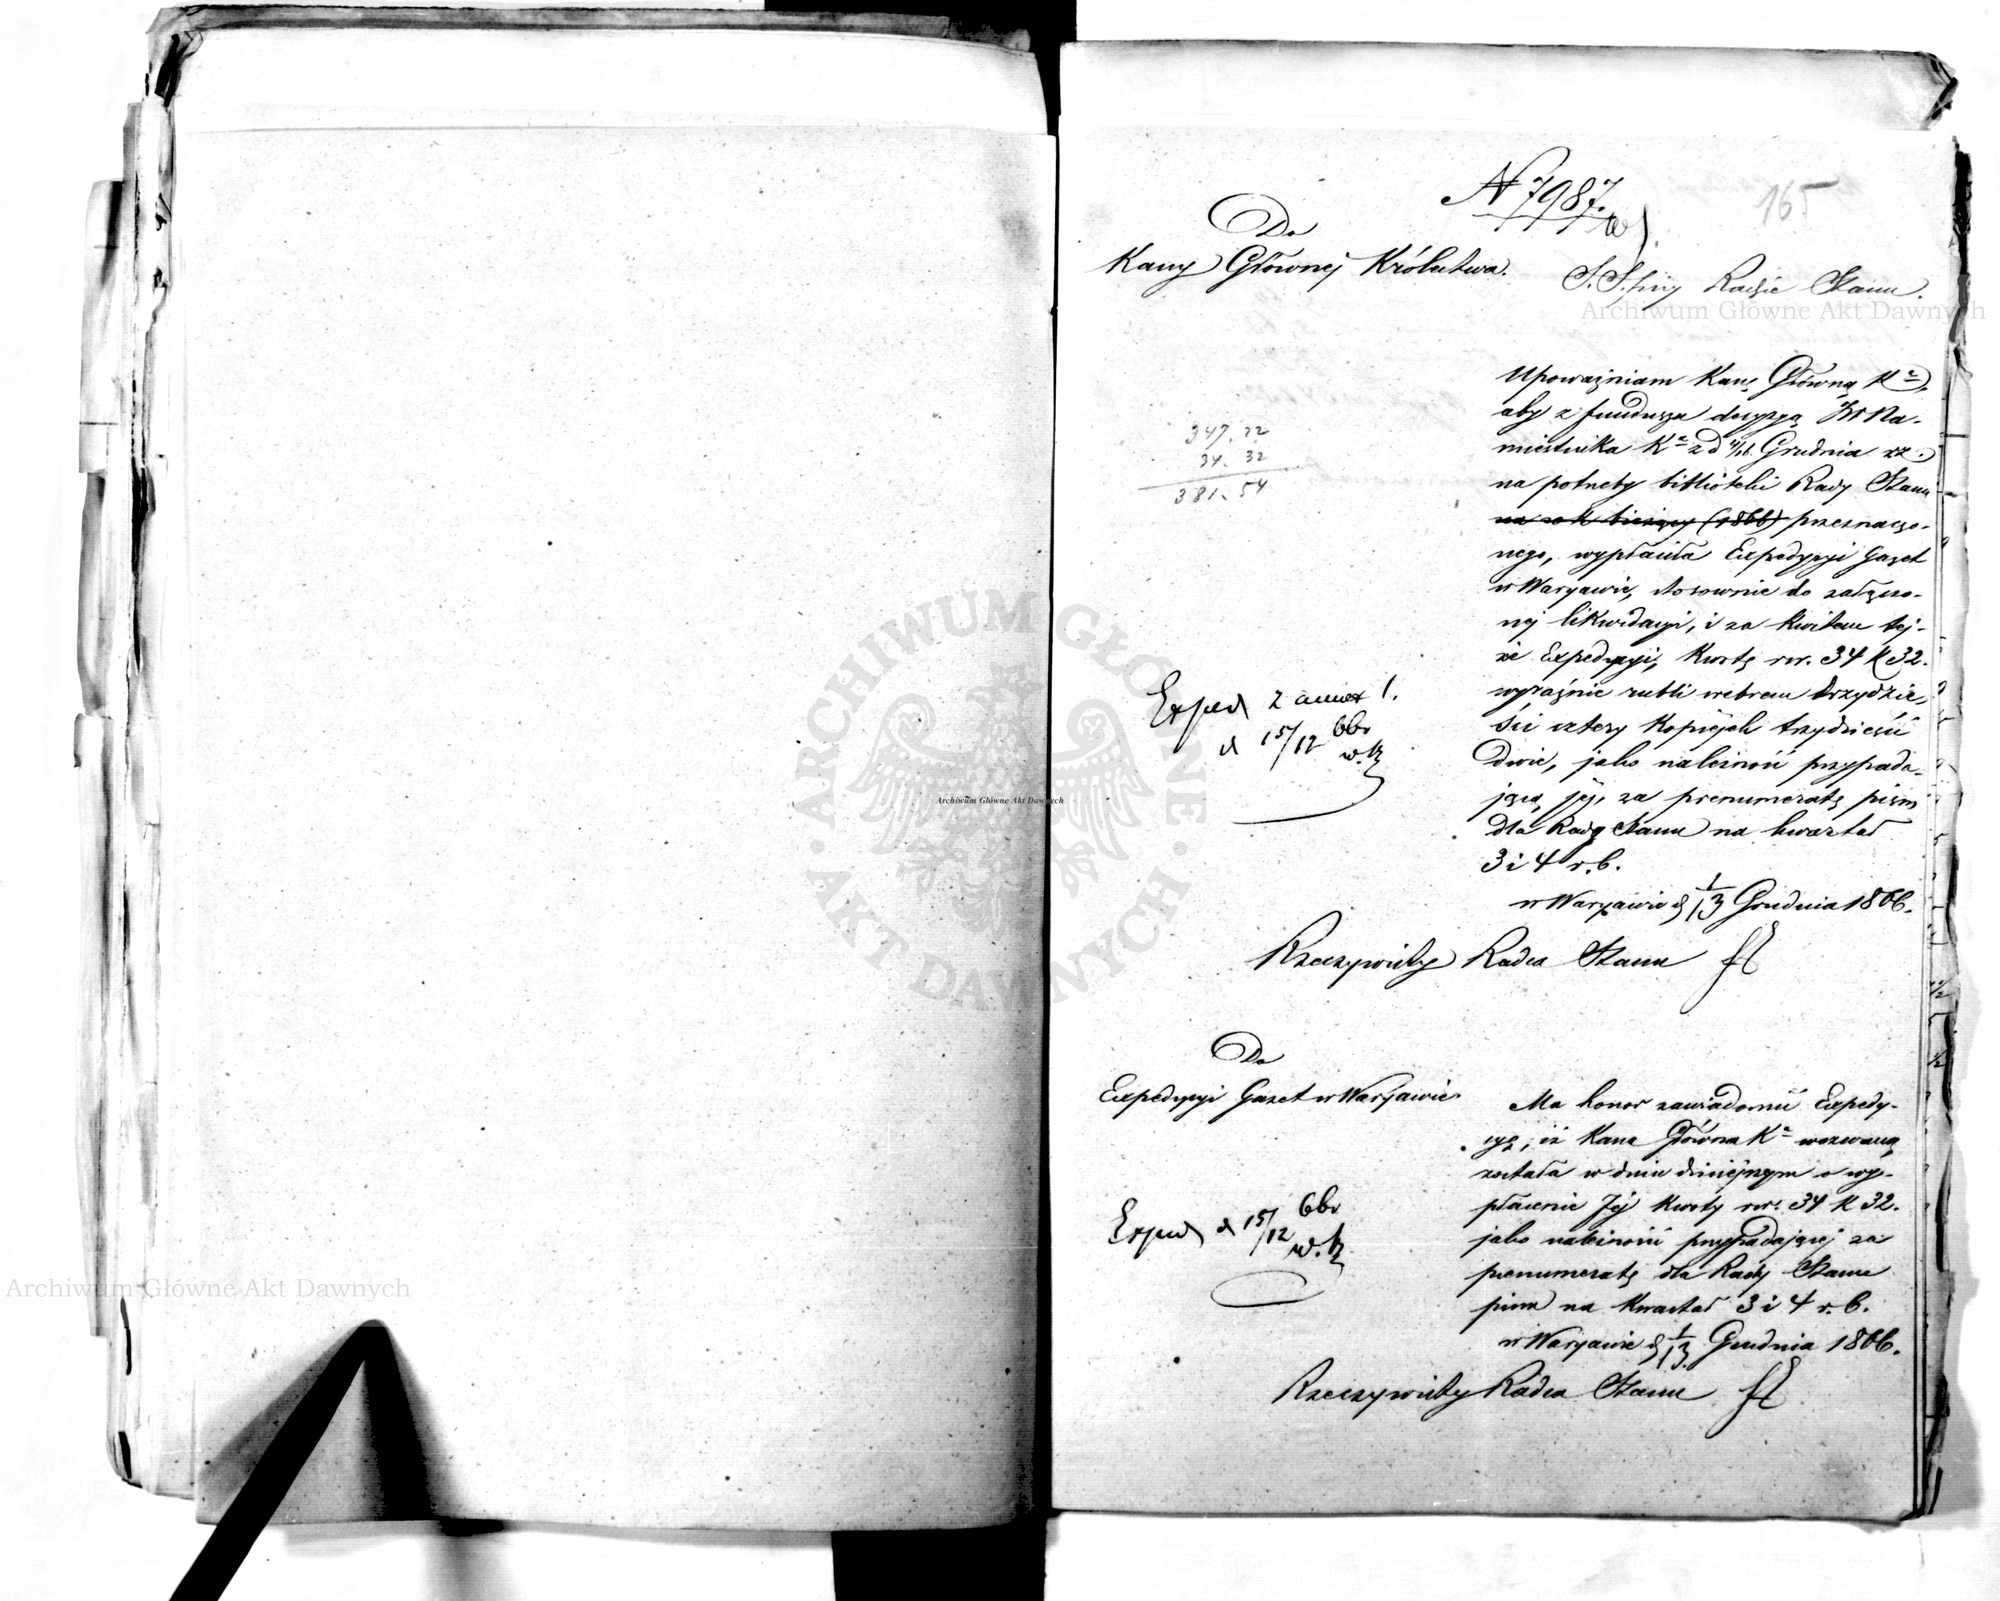 N 7987.
165
Do
Kassy Głównej Królestwa.
S. S. przy Radzie Stanu.
Archiwum Główne Akt Dawnych
Upoważniam Kassę Główną Kr.
aby z funduszu decyzyą JW Na-
miestnika Kr. z d 4/16 Grudnia
na potrzeby biblioteki Rady Stanu
na rok bieżący (1866) przeznaczo-
nego, wypłaciła Expedycyi Gazet
w Warszawie, stosownie do załączo-
nej likwidacyi, i za kwitem tej-
że Expedycyi, Kwotę rsr. 34 K 32.
wyraźnie rubli srebrem trzydzie-
ści cztery kopiejek trzydzieści
dwie, jako należność przypada-
jącą jej, za prenumeratę pism
dla Rady Stanu na kwartał
3 i 4 r. b.
w Warszawie d 1/13 Grudnia 1866.
Rzeczywisty Radca Stanu
347. 22
34. 32
381. 54
Exped z annex 1.
d 15/12 66r
w. K
ARCHIWUM GŁÓWNE
AKT DAWNYCH
Archiwum Główne Akt Dawnych
Do
Expedycyi Gazet w Warszawie
Ma honor zawiadomić Expedy-
cyę, iż Kassa Główna Kr. wezwaną
została w dniu dzisiejszym o wy-
płacenie Jej Kwoty rsr. 34 K 32.
jako należność przypadającej za
prenumeratę dla Rady Stanu
pism na Kwartał 3 i 4 r. b.
w Warszawie d 1/13 Grudnia 1866.
Rzeczywisty Radca Stanu
Exped d 15/12 66r
w. K
Archiwum Główne Akt Dawnych